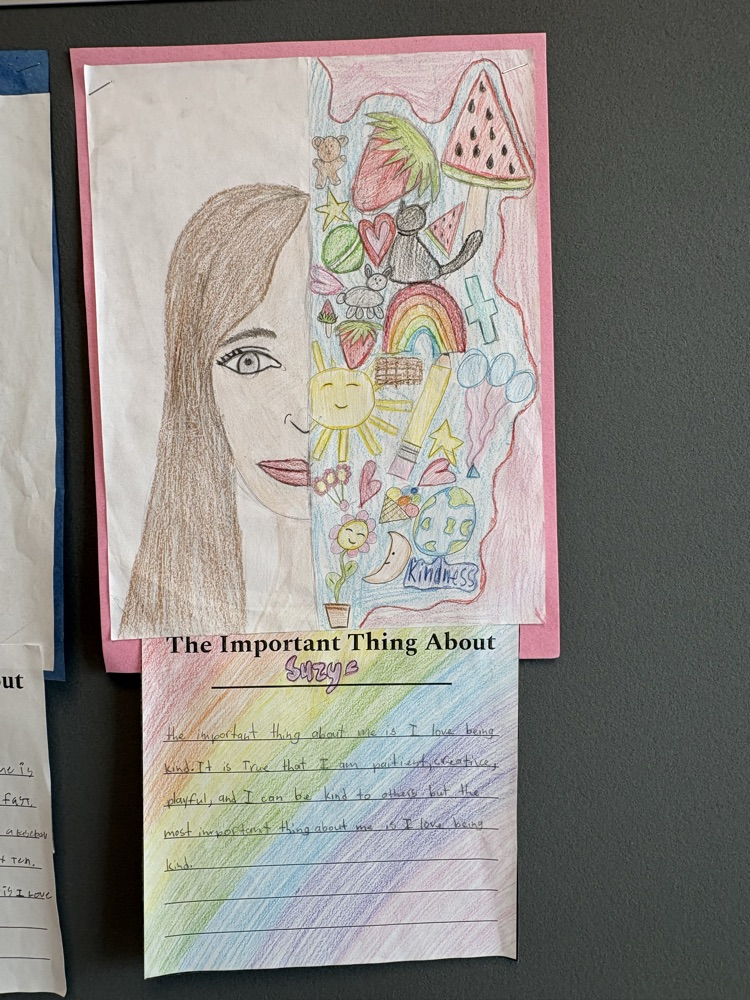 Kindness
The Important Thing About
Suzy
the important thing about me is I love being
kind. It is True that I am paitient, creatince,
playful, and I can be kind to others. but the
most important thing about me is I love being
kind.
out
me is
fast,
+ Ten.
is I Love